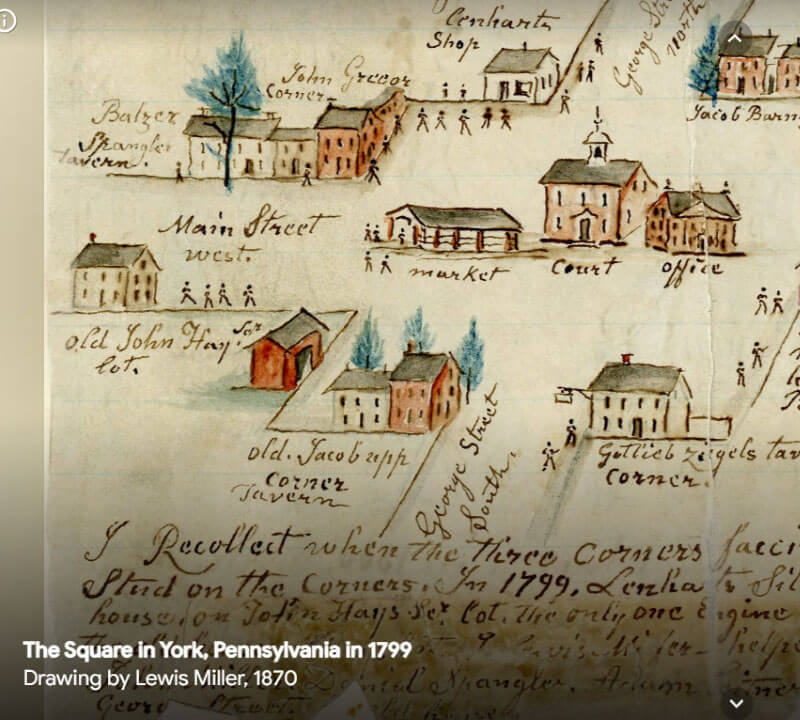 Lenharts
Shop
George Str
North
John Greeor
Corner
Balzer
Spangler
tavern.
Jacob Barn
Main Street
west.
market
Court
office
old John Hay Ser
lot.
old. Jacob upp
Corner
Tavern
George Street
South.
Gottlieb ziegels tav
Corner.
I Recollect when the three Corners facci
Stud on the Corners. In 1799, Lenha ts Sil
house, on John Hays Ser. lot. the only one engine
Lewis Miller helpe
Daniel Spangler, Adam
Georg Street
The Square in York, Pennsylvania in 1799
Drawing by Lewis Miller, 1870